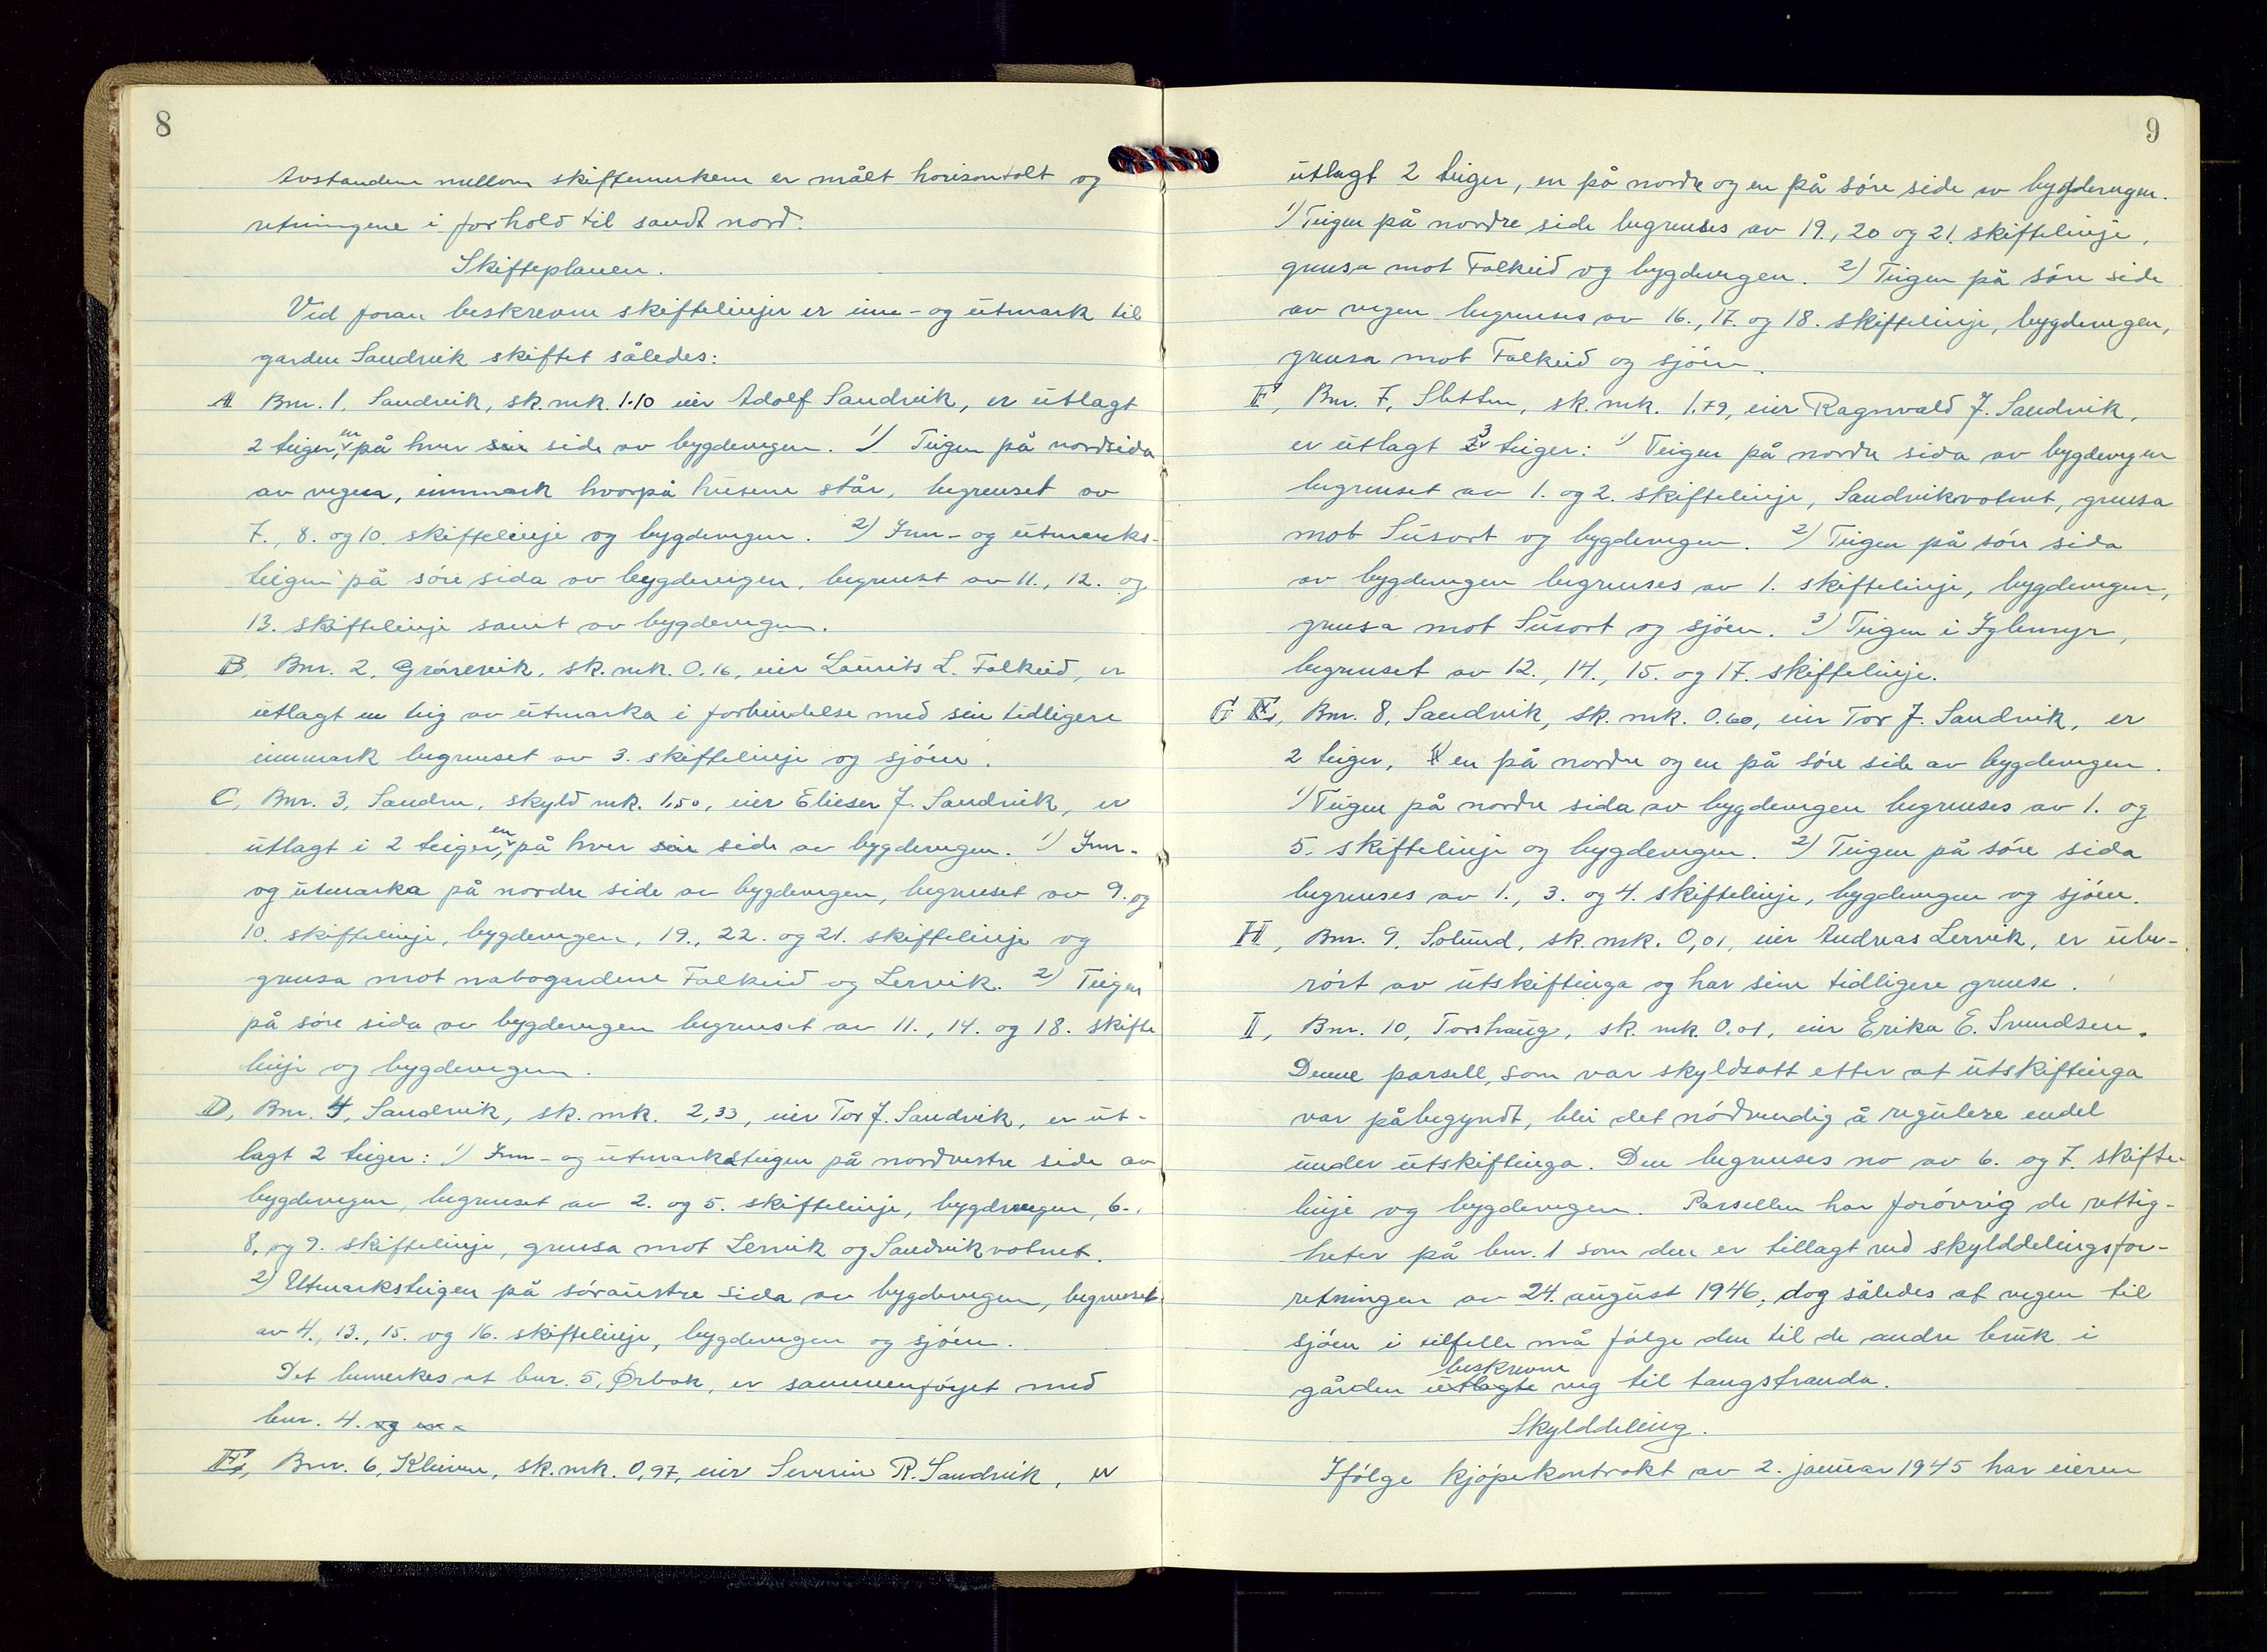 8
Avstanden mellom skiftemerkene er målt horisontalt og
retningene i forhold til sandt nord.
Skifteplanen.
Ved foran beskrevne skiftelinjer er inn- og utmark til
garden Sandvik skiftet således:
A Bnr. 1, Sandvik, sk.mrk. 1.10 eier Adolf Sandvik, er utlagt
2 teiger, en på hver sin side av bygdevegen. 1) Teigen på nordsida
av vegen, innmark hvorpå husene står, begrenset av
7., 8. og 10. skiftelinje og bygdevegen. 2) Inn- og utmarks-
teigen på søre sida av bygdevegen, begrenset av 11., 12. og
13. skiftelinje samt av bygdevegen.
B, Bnr. 2, Grårevik, sk.mrk. 0,16, eier Laurits L. Falkeid, er
utlagt en teig av utmarka i forbindelse med sin tidligere
innmark begrenset av 3. skiftelinje og sjøen.
C, Bnr. 3, Sandnn, skyld mrk. 1,50, eier Elieser J. Sandvik, er
utlagt i 2 teiger, en på hver sin side av bygdevegen. 1) Inn-
og utmarka på nordre side av bygdevegen, begrenset av 9. og
10. skiftelinje, bygdevegen, 19., 22. og 21. skiftelinje og
grensa mot nabogardene Falkeid og Lervik. 2) Teigen
på søre sida av bygdevegen begrenset av 11., 14. og 18. skifte
linje og bygdevegen.
D, Bnr. 4, Sandvik, sk.mrk. 2,33, eier Tor J. Sandvik, er ut-
lagt 2 teiger: 1) Inn- og utmarksteigen på nordvestre side av
bygdevegen, begrenset av 2. og 5. skiftelinje, bygdevegen, 6.,
8. og 9. skiftelinje, grensa mot Lervik og Sandvikvatnet.
2) Utmarksteigen på søraustre sida av bygdevegen, begrenset
av 4., 13., 15. og 16. skiftelinje, bygdevegen og sjøen.
Det bemerkes at bnr. 5, Ørbak, er sammenføyet med
bnr. 4. og
E, Bnr. 6, Kleiven, sk.mrk. 0,97, eier Severin R. Sandvik, er
9
utlagt 2 teiger, en på nordre og en på søre side av bygdevegen.
1) Teigen på nordre side begrenses av 19., 20 og 21. skiftelinje,
grensa mot Falkeid og bygdevegen. 2) Teigen på søre side
av vegen begrenses av 16., 17. og 18. skiftelinje, bygdevegen,
grensa mot Falkeid og sjøen.
F, Bnr. 7, Sletten, sk.mrk. 1.79, eier Ragnvald J. Sandvik,
er utlagt 3 teiger: 1) Teigen på nordre sida av bygdevegen
begrenset av 1. og 2. skiftelinje, Sandvikvatnet, grensa
mot Susort og bygdevegen. 2) Teigen på søre sida
av bygdevegen begrenses av 1. skiftelinje, bygdevegen,
grensa mot Susort og sjøen. 3) Teigen i Iglemyr,
begrenset av 12., 14., 15. og 17. skiftelinje.
G, Bnr. 8, Sandvik, sk. mrk. 0.60, eier Tor J. Sandvik, er
2 teiger, en på nordre og en på søre side av bygdevegen.
1) Teigen på nordre sida av bygdevegen begrenses av 1. og
5. skiftelinje og bygdevegen. 2) Teigen på søre sida
begrenses av 1., 3. og 4. skiftelinje, bygdevegen og sjøen.
H, Bnr. 9, Solund, sk.mrk. 0,01, eier Andreas Lervik, er ube-
rørt av utskiftinga og har sine tidligere grense.
I, Bnr. 10, Torshaug, sk. mrk. 0.01, eier Erika E. Svendsen.
Denne parsell, som var skyldsatt etter at utskiftinga
var påbegyndt, blei det nødvendig å regulere endel
under utskiftinga. Den begrenses no av 6. og 7. skifte-
linje og bygdevegen. Parsellen har forøvrig de rettig-
heter på bnr. 1 som den er tillagt ved skylddelingsfor-
retningen av 24. august 1946, dog således at vegen til
sjøen i tilfelle må følge den til de andre bruk i
gården utlagte beskrevne veg til tangstranda.
Skylddeling.
Ifølge kjøpekontrakt av 2. januar 1945 har eieren